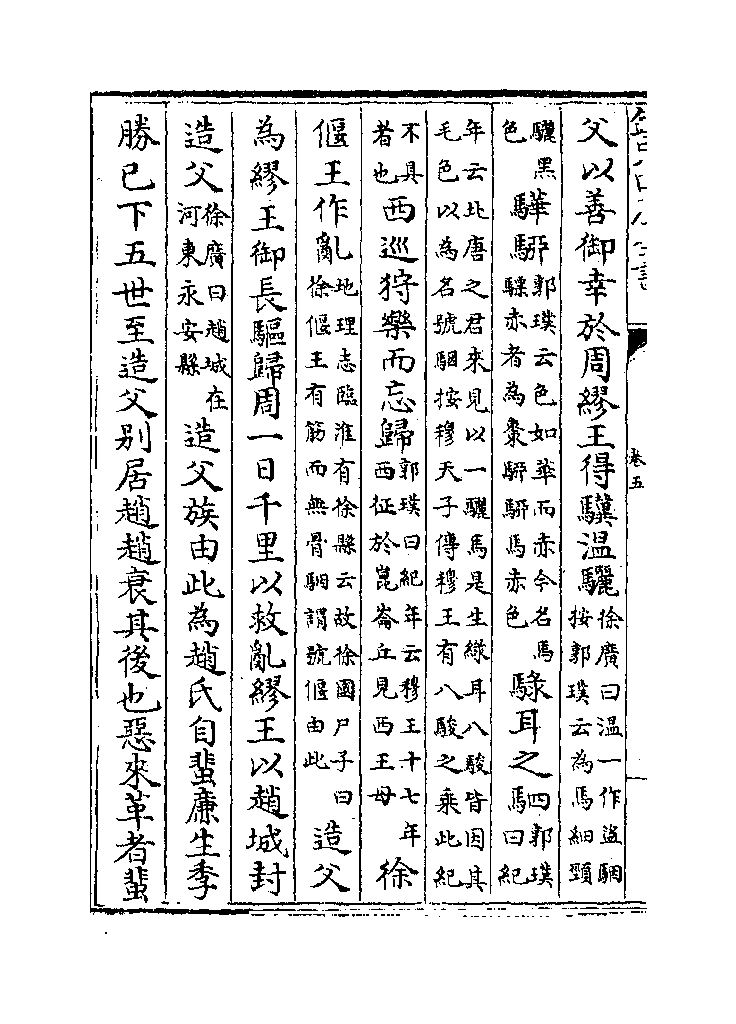 卷五
父以善御幸於周繆王得驥温驪徐廣曰温一作盜駰按郭璞云為馬細頸
驥黒色驊騮郭璞云色如華而赤今名馬騾赤者為棗騮騮馬赤色騄耳之駟郭璞曰紀
年云北唐之君來見以一驪馬是生緑耳八駿皆因其毛色以為名號駰按穆天子傳穆王有八駿之乘此紀
不具者也西巡狩樂而忘歸郭璞曰紀年云穆王十七年西征於崑崙丘見西王母徐
偃王作亂地理志臨淮有徐縣云故徐國尸子曰徐偃王有筋而無骨駰謂號偃由此造父
為繆王御長驅歸周一日千里以救亂繆王以趙城封
造父徐廣曰趙城在河東永安縣造父族由此為趙氏自蜚廉生季
勝已下五世至造父别居趙趙衰其後也惡來革者蜚